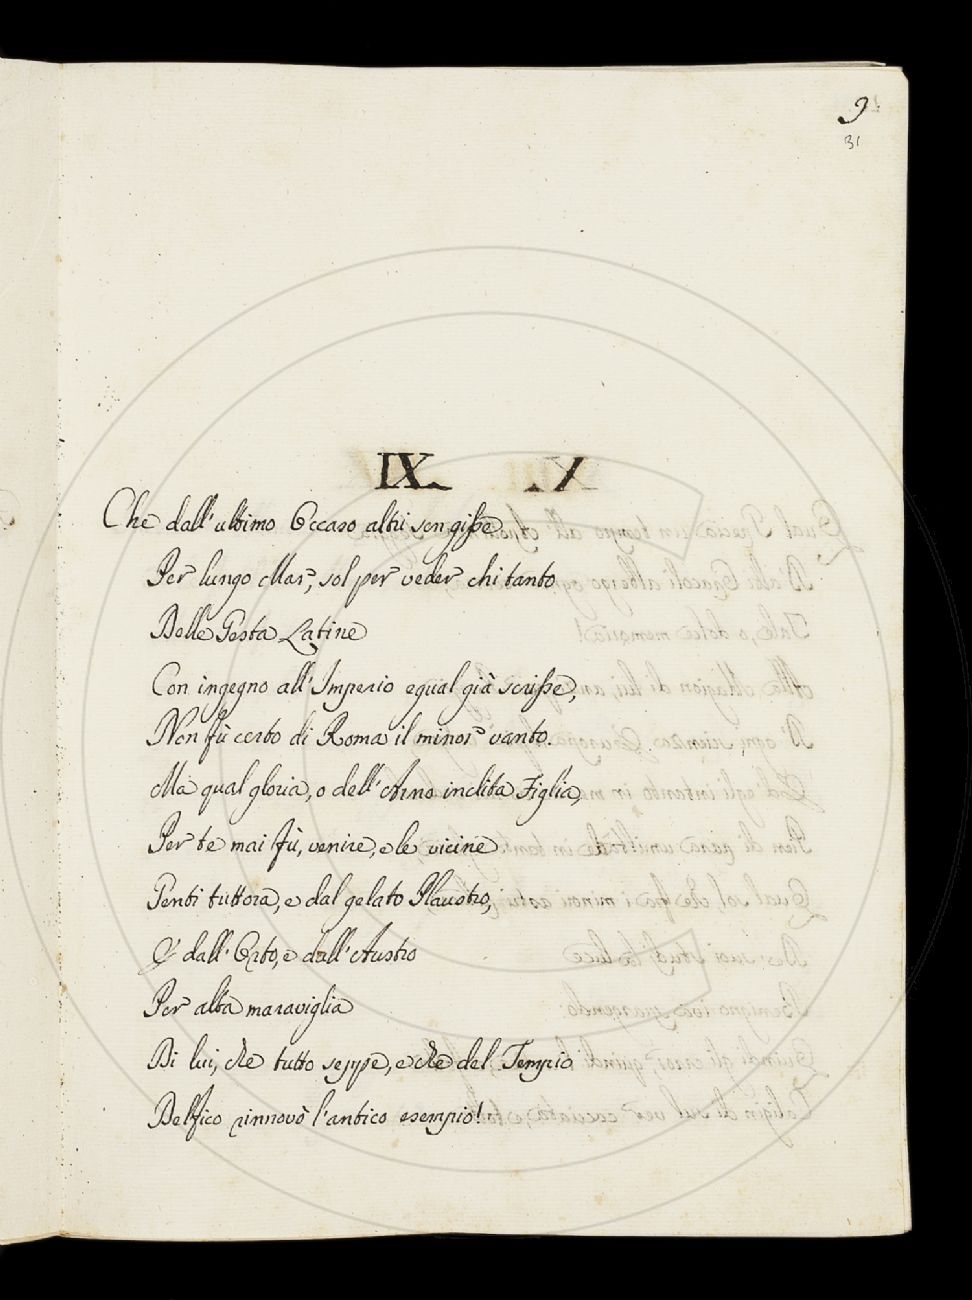 9
31
IX.
Che dall'ultimo Occaso altri sen gisse
Per lungo Mar, sol per veder chi tanto
Delle Gesta Latine
Con ingegno all'Imperio egual già scrisse,
Non fù certo di Roma il minor vanto.
Ma qual gloria, o dell'Arno inclita Figlia,
Per te mai fù, venire, e le vicine
Genti tuttora, e dal gelato Plaustro,
E dall'Orto, e dall'Austro
Per alta maraviglia
Di lui, che tutto seppe, e che del Tempio
Delfico rinnovò l'antico esempio!